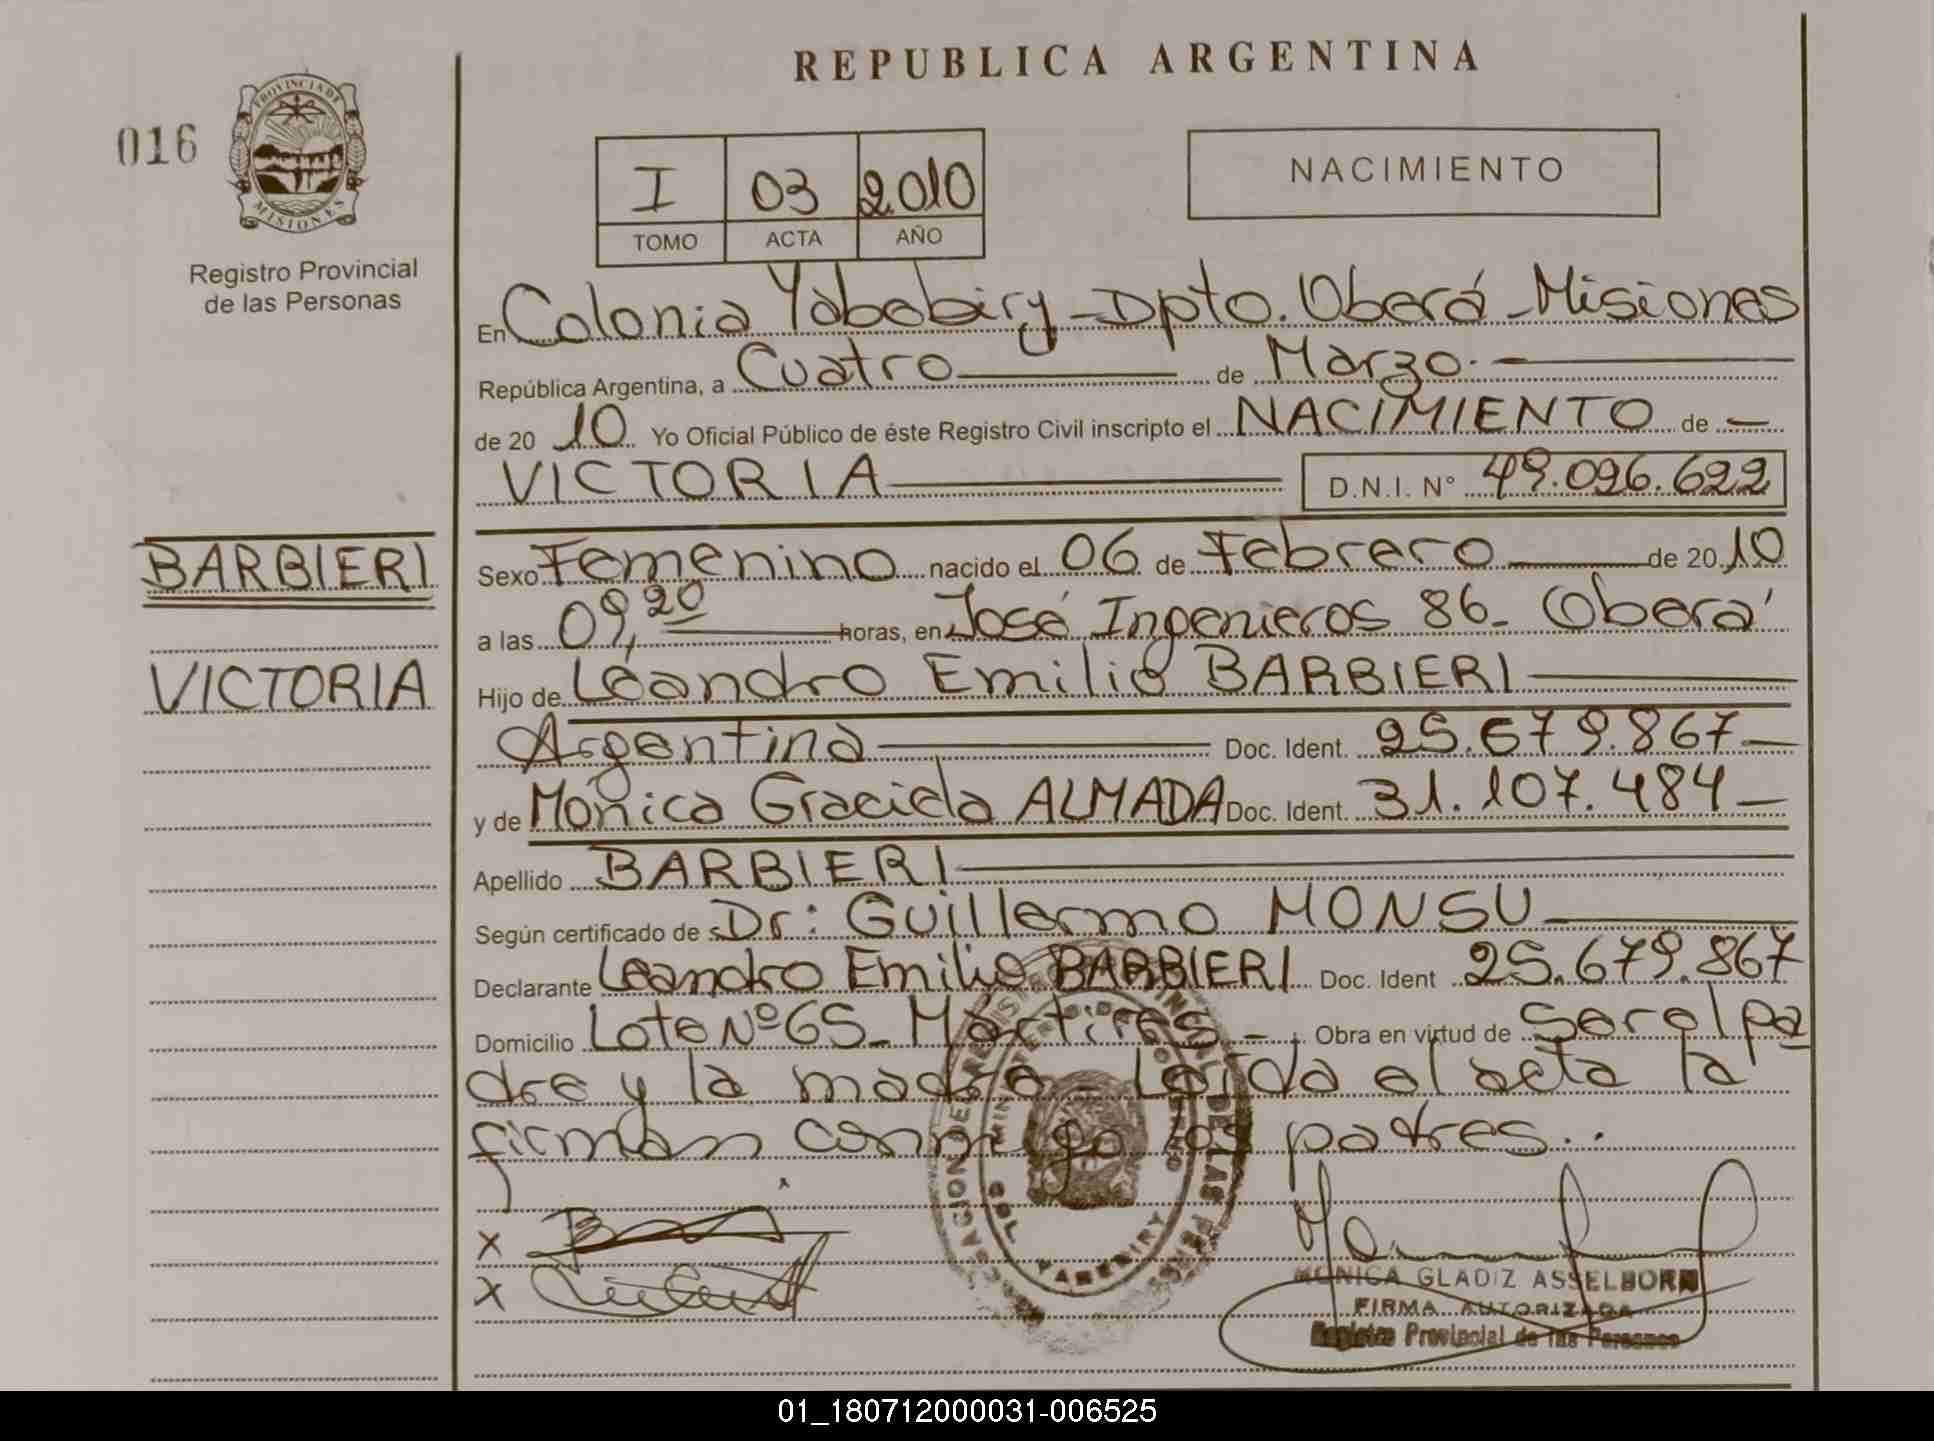 REPUBLICA ARGENTINA
016
PROVINCIA DE
MISIONES
Registro Provincial
de las Personas
I 03 2010
TOMO ACTA AÑO
NACIMIENTO
En Colonia Yabebiry - Dpto. Oberá - Misiones
República Argentina, a Cuatro de Marzo. -
de 20 10 Yo Oficial Público de éste Registro Civil inscripto el NACIMIENTO de -
VICTORIA D.N.I. N° 49.096.622
BARBIERI
VICTORIA
Sexo Femenino nacido el 06 de Febrero de 20 10
a las 09,20 horas, en José Ingenieros 86 - Oberá
Hijo de Leandro Emilio BARBIERI
Argentina Doc. Ident. 25.679.867 -
y de Mónica Graciela ALMADA Doc. Ident. 31.107.484 -
Apellido BARBIERI
Según certificado de Dr: Guillermo MONSU
Declarante Leandro Emilio BARBIERI Doc. Ident 25.679.867
Domicilio Lote Nº 65 - Mártires - . Obra en virtud de Ser el pa
dre y la madre - Leída el acta la
firman conmigo los padres..
x
x
YABEBIRY
MONICA GLADIZ ASSELBORN
FIRMA AUTORIZADA
Registro Provincial de las Personas
01_180712000031-006525